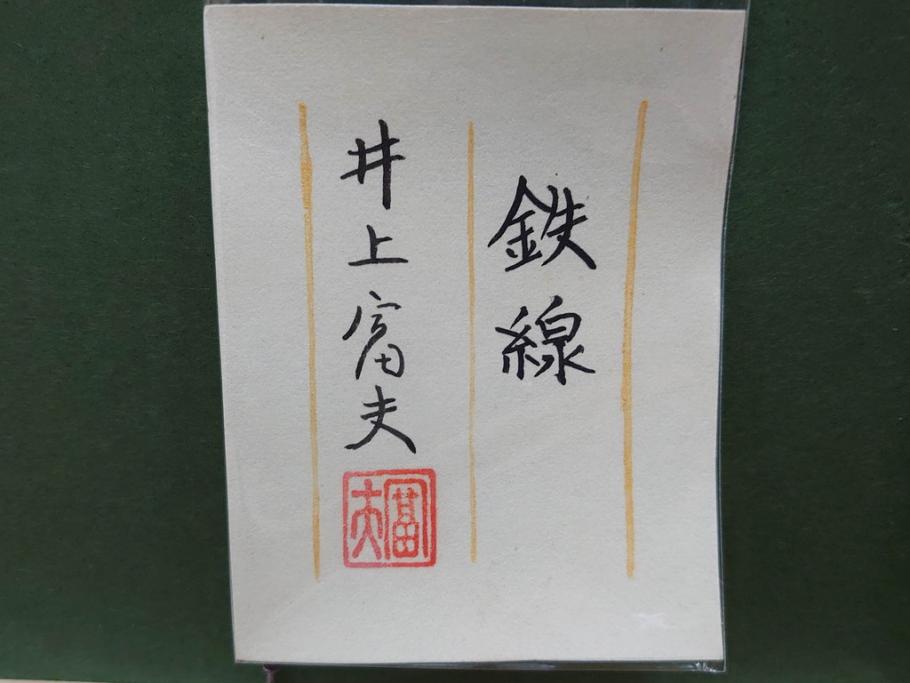 鉄線
井上富夫
富夫